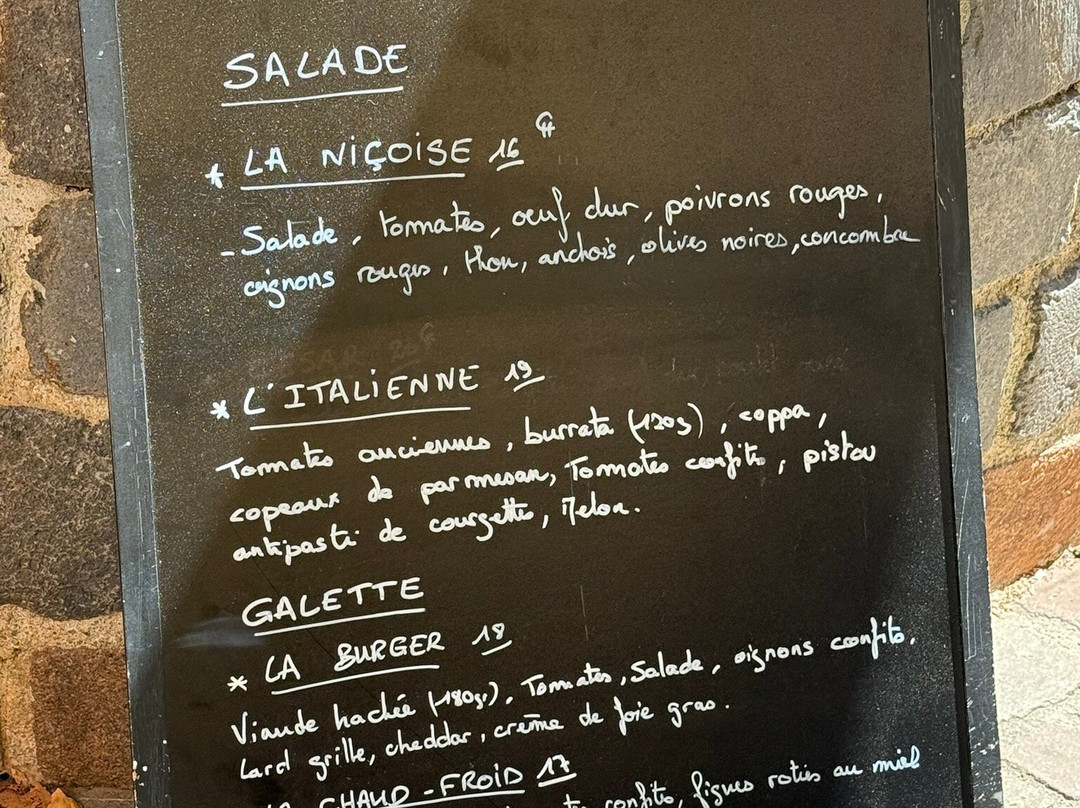 SALADE
* LA NIÇOISE 16 €
- Salade, tomates, oeuf dur, poivrons rouges,
oignons rouges, thon, anchois, olives noires, concombre
* L'ITALIENNE 19
Tomates anciennes, burrata (120g), coppa,
copeaux de parmesan, Tomates confites, pistou
antipasti de courgettes, Melon.
GALETTE
* LA BURGER 18
Viande hachée (180gr), Tomates, Salade, oignons confits,
Lard grille, cheddar, crème de foie gras.
CHAUD-FROID 17
confits, figues roties au miel